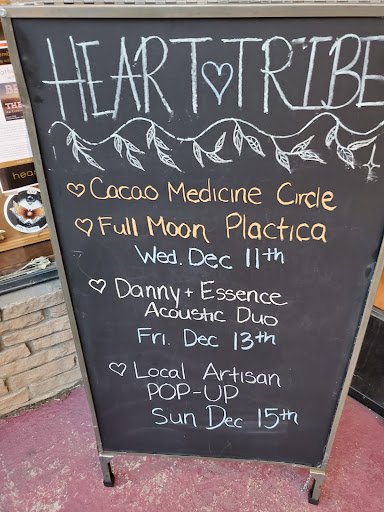 HEART TRIBE
Cacao Medicine Circle
Full Moon Plactica
Wed. Dec 11th
Danny + Essence
Acoustic Duo
Fri. Dec 13th
Local Artisan
POP-UP
Sun Dec 15th